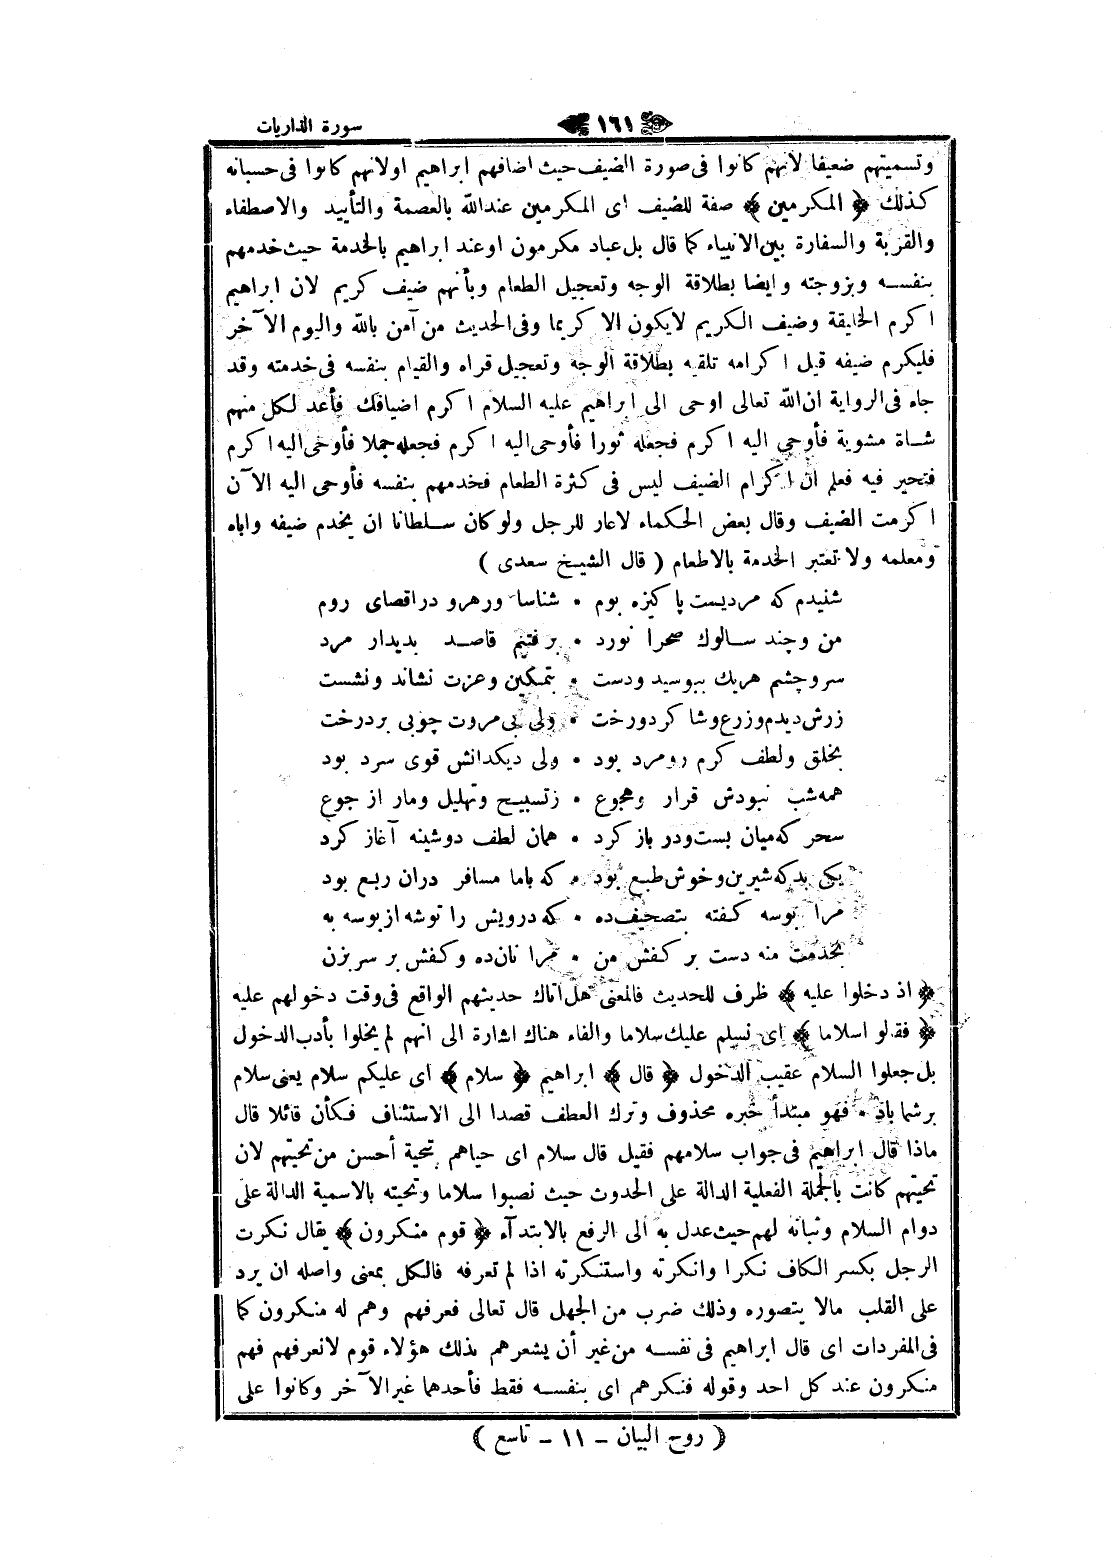 سورة الذاريات
١٦١
وتسميتهم ضعيفا لانهم كانوا فى صورة الضيف حيث اضافهم ابراهيم اولانهم كانوا فى حسبانه
كذلك ﴿ المكرمين ﴾ صفة للضيف اى المكرمين عندالله بالعصمة والتأييد والاصطفاء
والقربة والسفارة بين الانبياء كما قال بل عباد مكرمون اوعند ابراهيم بالخدمة حيث خدمهم
بنفسه وبزوجته وايضا بطلاقة الوجه وتعجيل الطعام وبأنهم ضيف كريم لان ابراهيم
اكرم الخليقة وضيف الكريم لايكون الا كريما وفى الحديث من آمن بالله واليوم الآخر
فليكرم ضيفه قيل اكرامه تلقيه بطلاقة الوجه وتعجيل قراه والقيام بنفسه فى خدمته وقد
جاء فى الرواية ان الله تعالى اوحى الى ابراهيم عليه السلام اكرم اضيافك فأعد لكل منهم
شاة مشوية فأوحى اليه اكرم فجعله ثورا فأوحى اليه اكرم فجعله جملا فأوحى اليه اكرم
فتحير فيه فعلم ان اكرام الضيف ليس فى كثرة الطعام فخدمهم بنفسه فأوحى اليه الآن
اكرمت الضيف وقال بعض الحكماء لاعار للرجل ولو كان سلطانا ان يخدم ضيفه واباه
ومعلمه ولا تعتبر الخدمة بالاطعام ( قال الشيخ سعدى )
شنيدم كه مرديست پاكيزه بوم • شناسا ورهرو در اقصاى روم
من وچند سالوك صحرا نورد • برفتيم قاصد بديدار مرد
سر وچشم هريك ببوسيد ودست • بتمكين وعزت نشاند ونشست
زرش ديدم وزرع وشا كرد ورخت • ولى بى مروت چوبى بر درخت
بخلق ولطف كرم رو مرد بود • ولى ديكدانش قوى سرد بود
همه شب نبودش قرار وهجوع • زتسبيح وتهليل ومار از جوع
سحر كه ميان بست ودر باز كرد • همان لطف دوشينه آغاز كرد
يكى بد كه شيرين وخوش طبع بود • كه باما مسافر دران ربع بود
مرا بوسه كفته بتصحيف ده • كه درويش را توشه از بوسه به
بخدمت منه دست بر كفش من • مرا نان ده وكفش بر سر بزن
﴿ اذ دخلوا عليه ﴾ ظرف للحديث فالمعنى هل اتاك حديثهم الواقع فى وقت دخولهم عليه
﴿ فقالو اسلاما ﴾ اى نسلم عليك سلاما والفاء هناك اشارة الى انهم لم يخلوا بأدب الدخول
بل جعلوا السلام عقيب الدخول ﴿ قال ﴾ ابراهيم ﴿ سلام ﴾ اى عليكم سلام يعنى سلام
برشما باد • فهو مبتدأ خبره محذوف وترك العطف قصدا الى الاستئناف فكأن قائلا قال
ماذا قال ابراهيم فى جواب سلامهم فقيل قال سلام اى حياهم بتحية أحسن من تحيتهم لان
تحيتهم كانت بالجملة الفعلية الدالة على الحدوث حيث نصبوا سلاما وتحيته بالاسمية الدالة على
دوام السلام وثباته لهم حيث عدل به الى الرفع بالابتدآء ﴿ قوم منكرون ﴾ يقال نكرت
الرجل بكسر الكاف نكرا وانكرته واستنكرته اذا لم تعرفه فالكل بمعنى واصله ان يرد
على القلب مالا يتصوره وذلك ضرب من الجهل قال تعالى فعرفهم وهم له منكرون كما
فى المفردات اى قال ابراهيم فى نفسه من غير أن يشعرهم بذلك هؤلاء قوم لانعرفهم فهم
منكرون عند كل احد وقوله فنكرهم اى بنفسه فقط فأحدهما غير الآخر وكانوا على
( روح البيان – ١١ – تاسع )